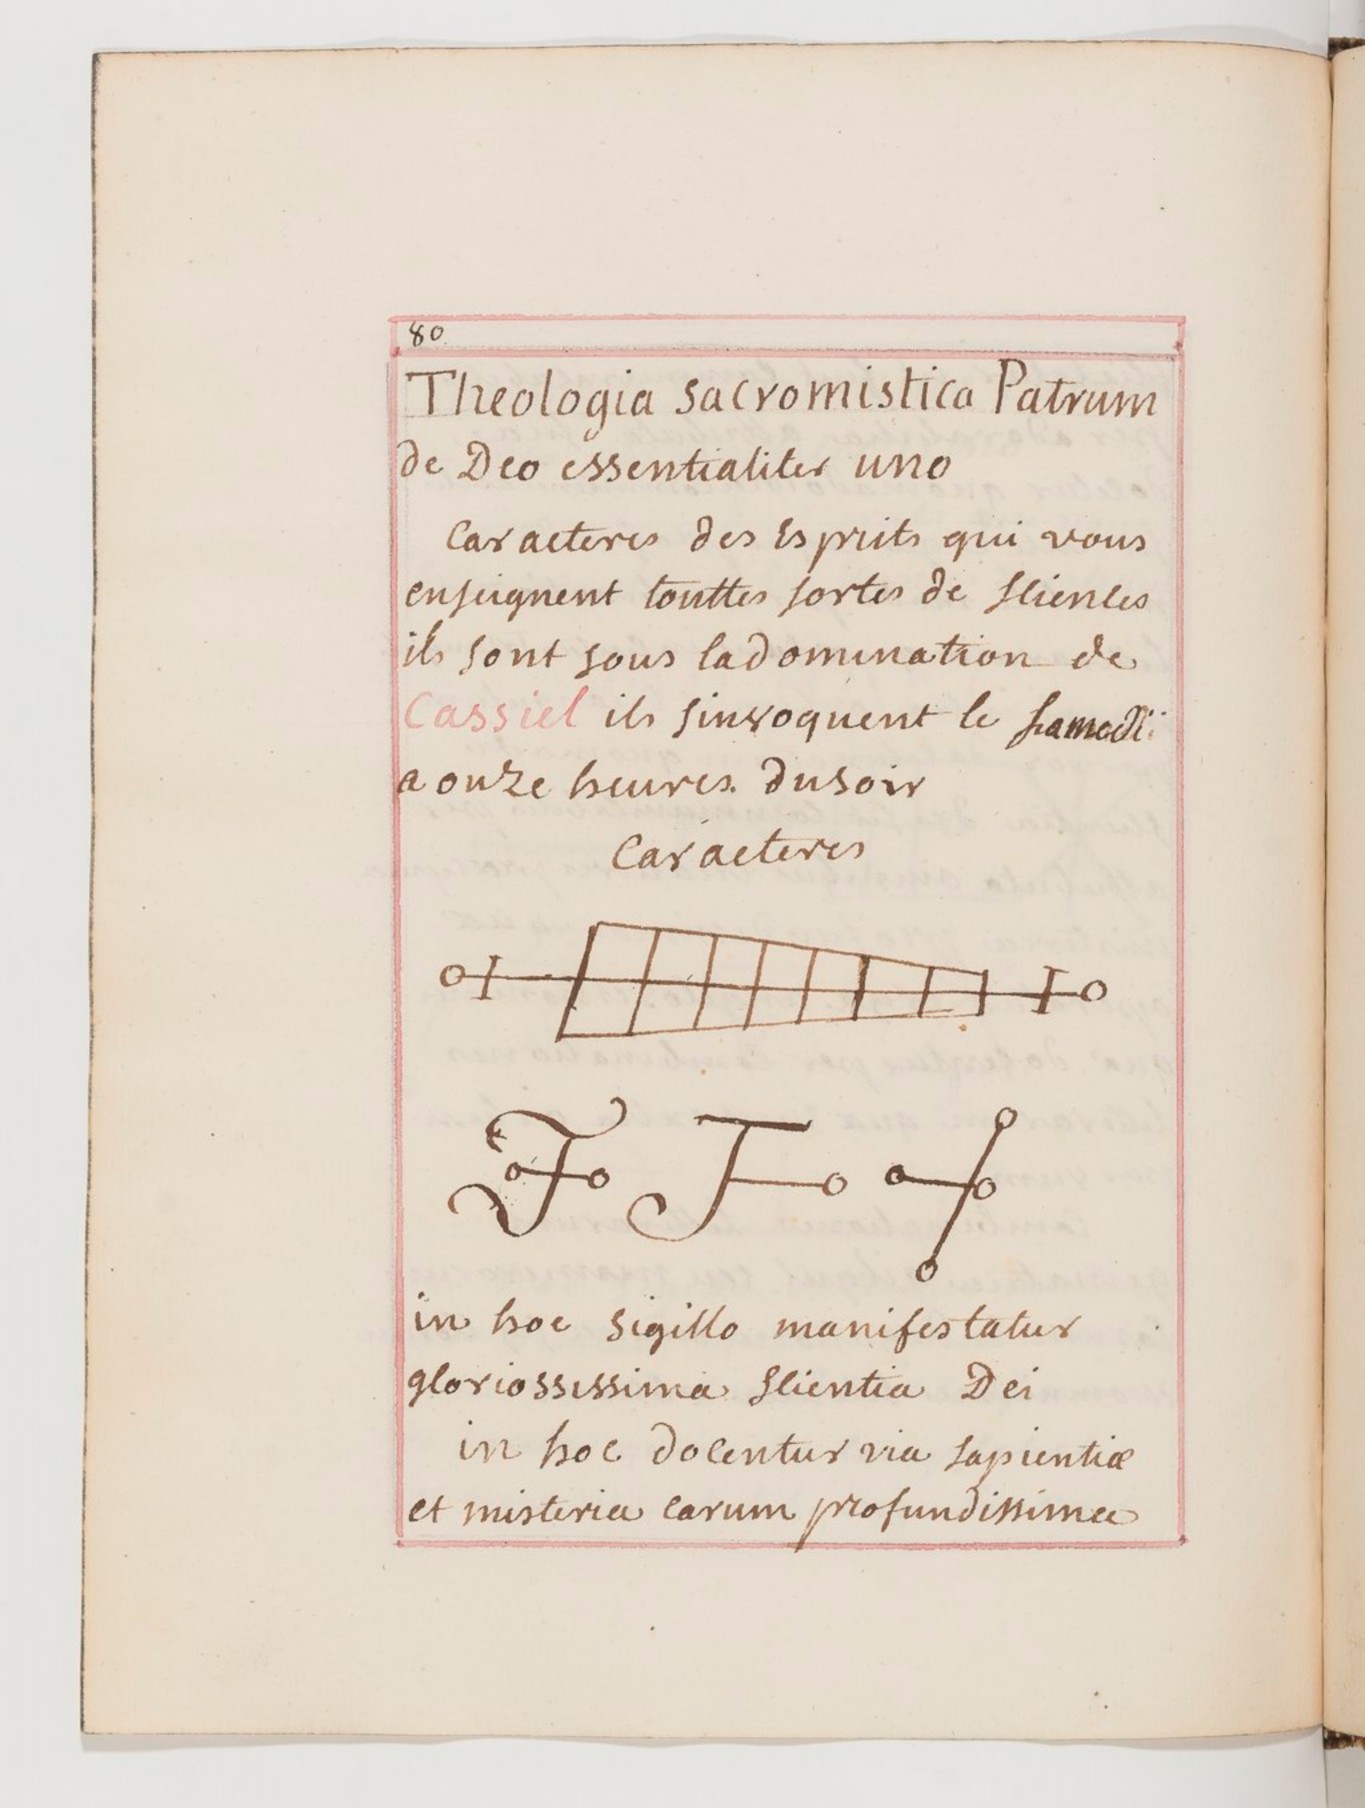 80
Theologia sacromistica Patrum
de Deo essentialiter uno
Caracteres des Esprits qui vous
enseignent touttes sortes de sciences
ils sont sous ladomination de
Cassiel ils sinvoquent le samedi
a onze heures dusoir
Caracteres
in hoc sigillo manifestatur
gloriossissima scientia Dei
in hoc docentur via sapientiæ
et misteria earum profundissima